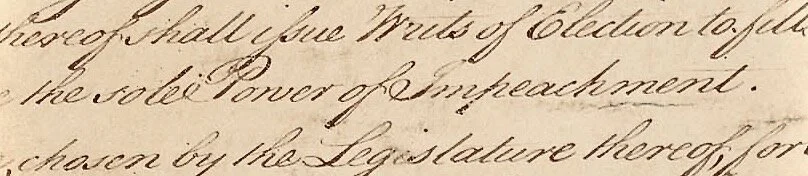 thereof shall issue Writs of Election to fill
the sole Power of Impeachment.
chosen by the Legislature thereof, for